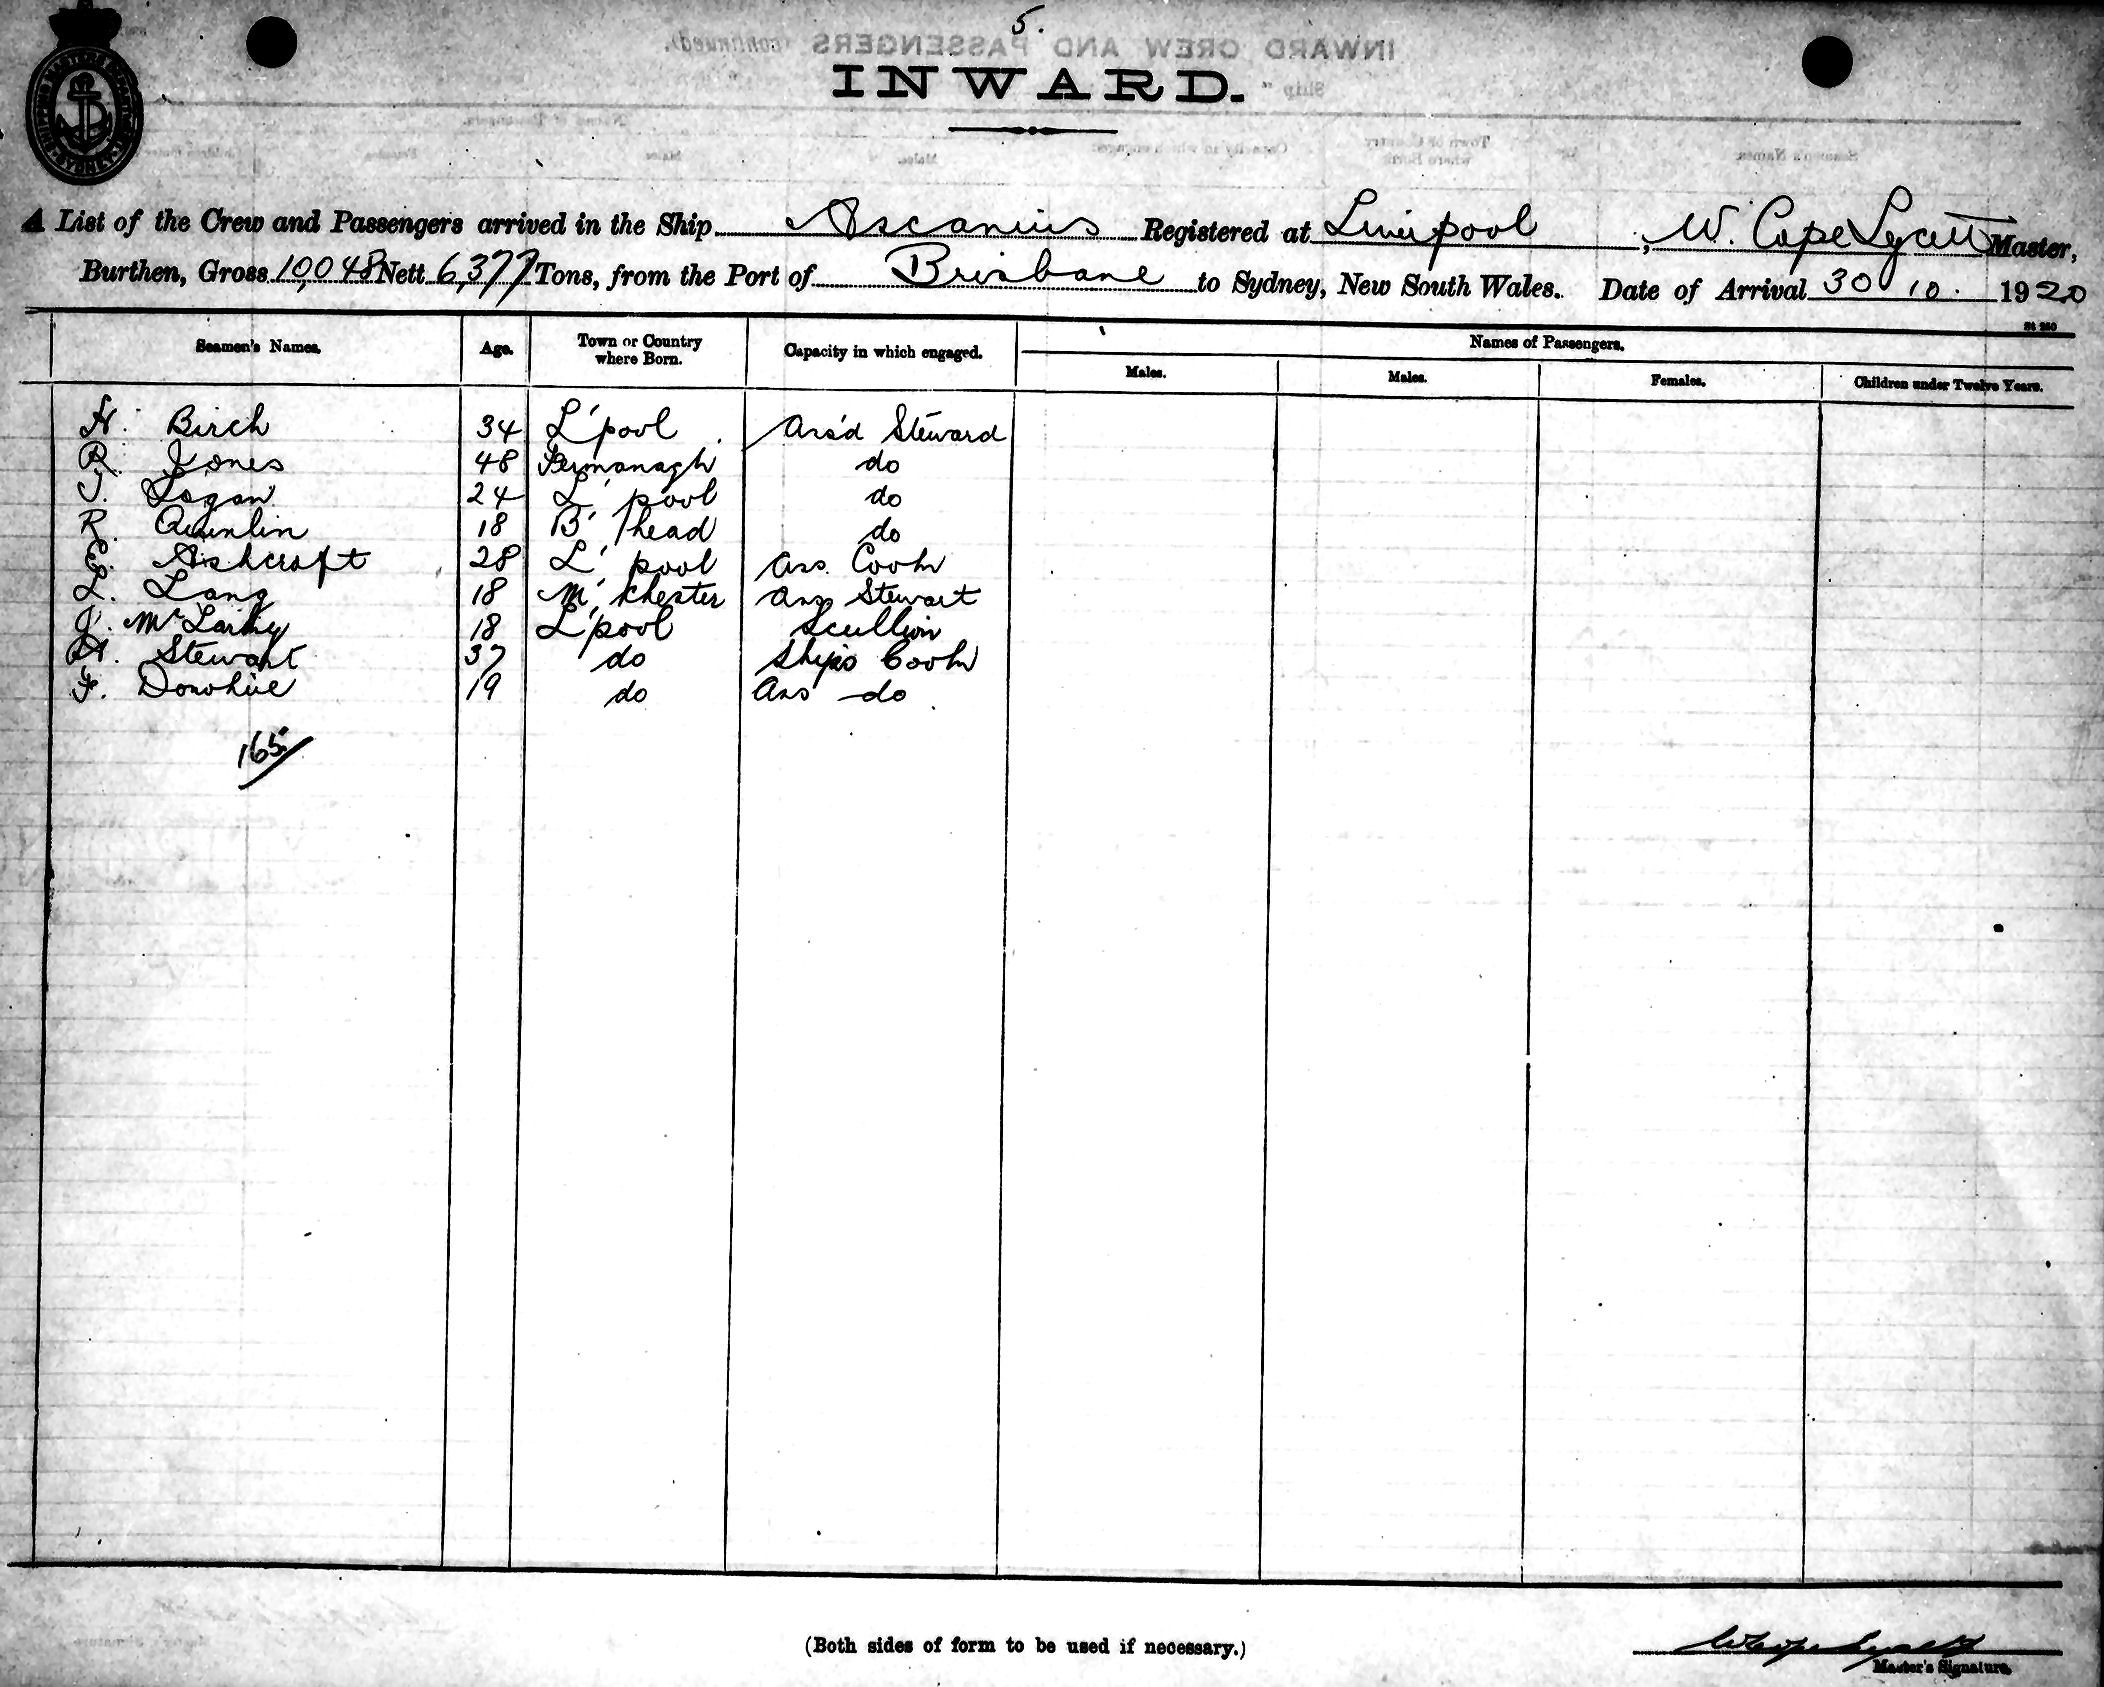 5.
INWARD.
A List of the Crew and Passengers arrived in the Ship Ascanius Registered at Liverpool, W. Cope Lycett Master,
Burthen, Gross 10,048 Nett 6,377 Tons, from the Port of Brisbane to Sydney, New South Wales. Date of Arrival 30 10. 1920
Seamen's Names. Age. Town or Country where Born. Capacity in which engaged. Names of Passengers.
Males. Males. Females. Children under Twelve Years.
H. Birch 34 L'pool Ass'd Steward
R. Jones 48 Fermanagh do
T. Logan 24 L'pool do
R. Quinlin 18 B'head do
E. Ashcroft 28 L'pool Ass. Cook
L. Lang 18 M'chester Ass Stewart
J. 18 L'pool Scullion
A. Stewart 37 do Ships Cook
F. Donohue 19 do Ass do
165
(Both sides of form to be used if necessary.)
W Cope Lycett
Master's Signature.